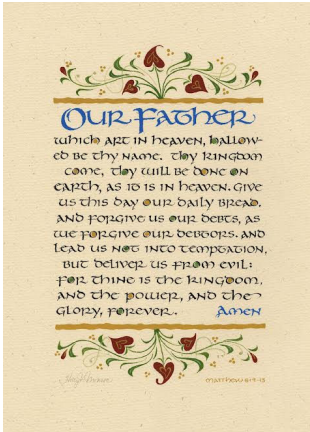 Our Father
which art in heaven, hallow-
ed be thy name. Thy kingdom
come, thy will be done on
earth, as it is in heaven. Give
us this day our daily bread.
And forgive us our debts, as
we forgive our debtors. And
lead us not into temptation,
but deliver us from evil:
For thine is the kingdom,
and the power, and the
glory, forever. Amen
Matthew 6:9-13